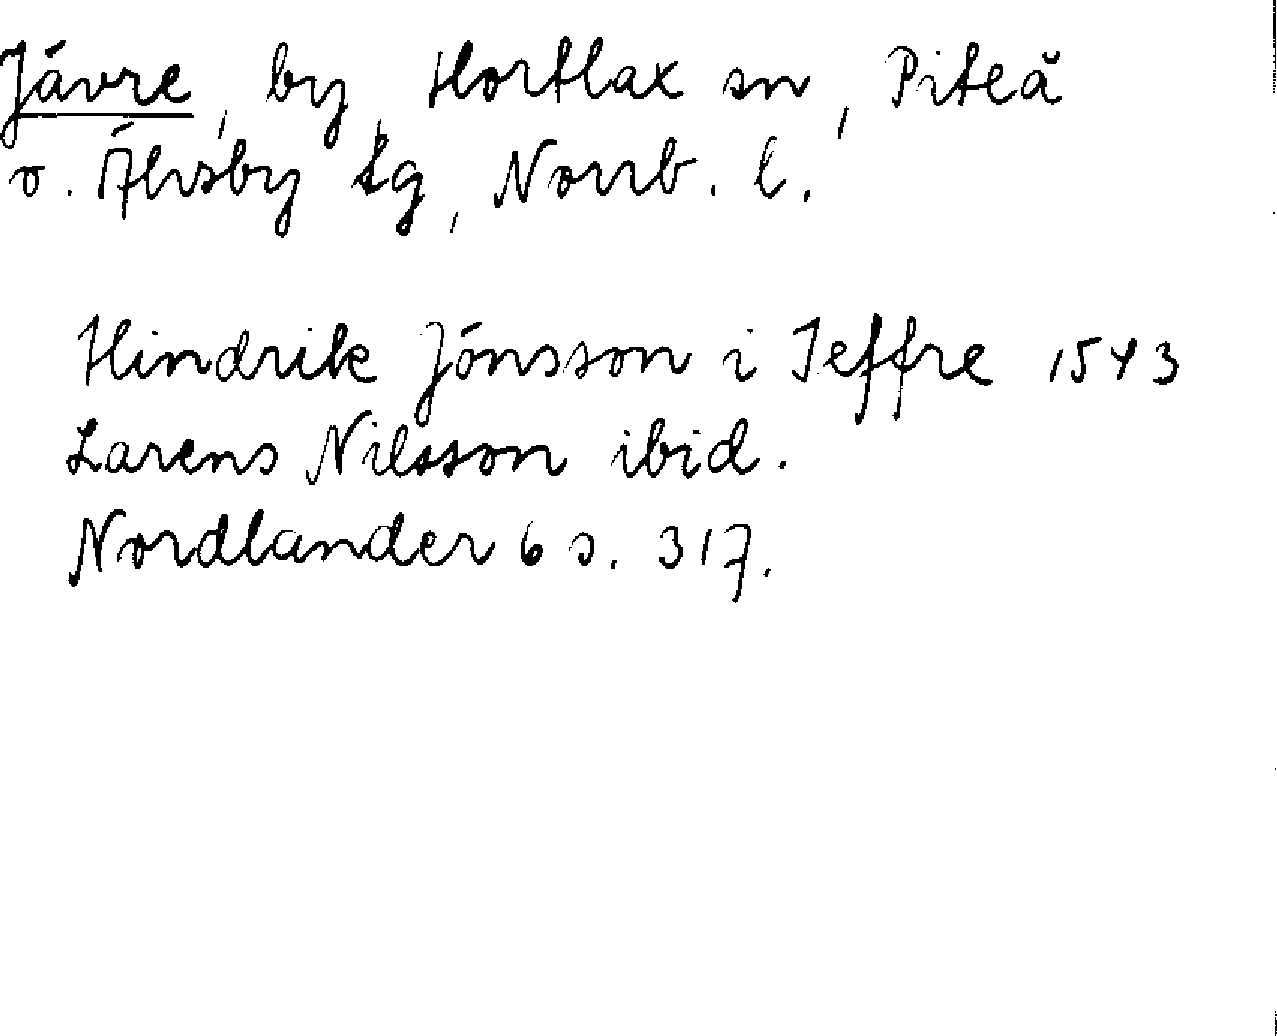 Jävre, by, Hortlax sn, Piteå
o. Älvsby tg, Norrb. l.
Hindrik Jönsson i Jeffre 1543
Larens Nilsson ibid.
Nordlander 6 s. 317.